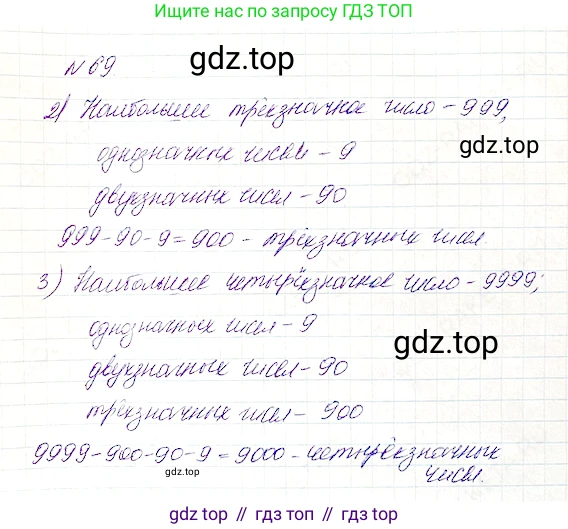 Ищите нас по запросу ГДЗ ТОП
№ 69
gdz.top
2) Наибольшее трёхзначное число - 999,
однозначных чисел - 9
gdz.top
двухзначных чисел - 90
999-90-9=900 - трёхзначных чисел.
3) Наибольшее четырёхзначное число - 9999;
однозначных чисел - 9
gdz.top
двухзначных чисел - 90
трёхзначных чисел - 900
9999-900-90-9=9000 - четырёхзначных
чисел.
gdz.top
gdz.top // гдз топ // gdz.top // гдз топ